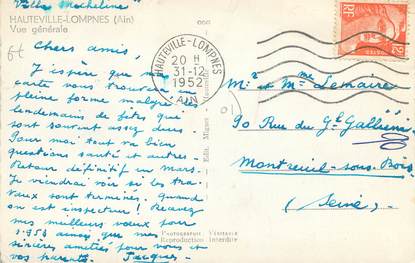 "Villa Micheline"
HAUTEVILLE-LOMPNES (Ain)
Vue générale
Chers amis,
J'espère que ma
carte vous trouvera en
pleine forme malgré les
lendemains de fêtes qui
sont souvent assez durs
Pour moi tout va bien
questions santé et autres.
Retour définitif en Mars.
Je viendrai voir si les tra-
vaux sont terminés. Quand
on est inspecteur! Recevez
mes meilleurs vœux pour
1.953 ainsi que mes
sincères amitiés pour vous et
vos parents. Jacques
HAUTEVILLE-LOMPNES
20 H
31-12
1952
AIN
RF
POSTES
Mr et Mme Lemaire
90 Rue du Gl Galliéni
Montreuil-sous-Bois
(Seine)
Edit. Mignot
Photographie Véritable
Reproduction Interdite